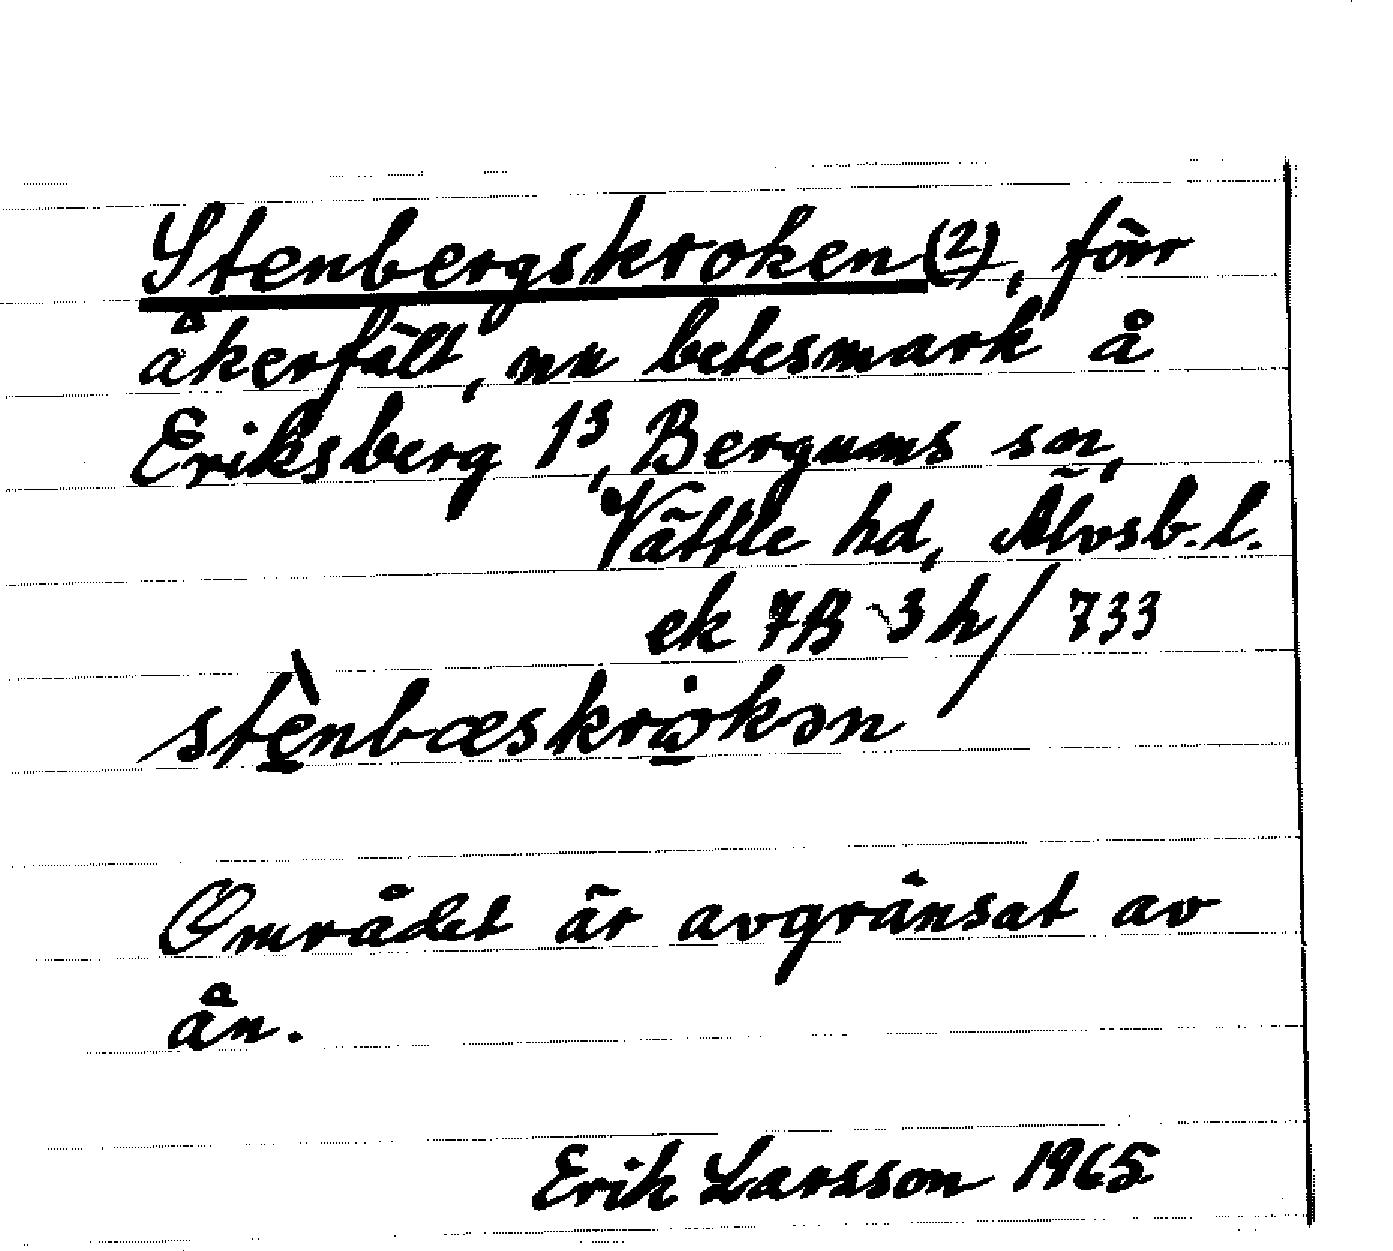 Stenbergskroken (2), förr
åkerfält, nu betesmark å
Eriksberg 1³, Bergums sn,
Vättle hd, Älvsb. l.
ek 7B 3h/733
stènbæskrọkən
Området är avgränsat av
ån.
Erik Larsson 1965